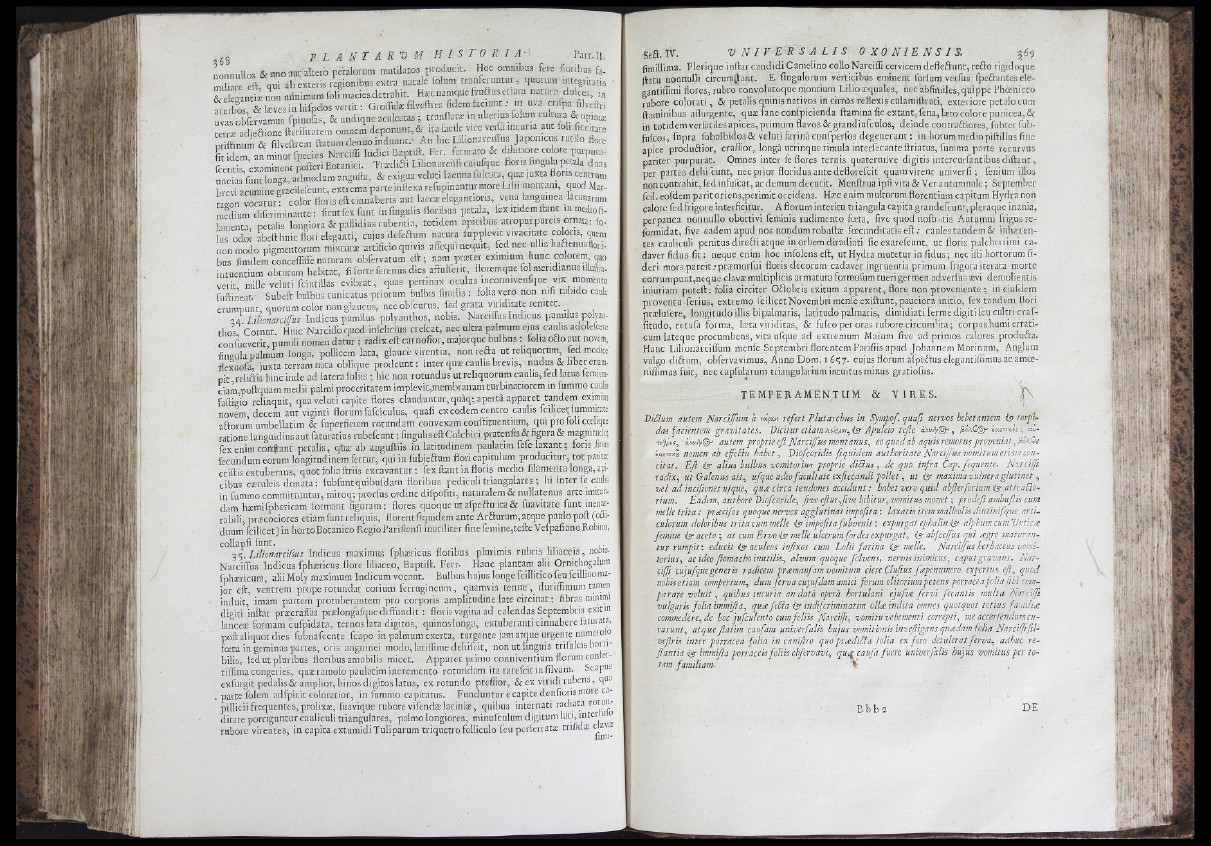 368 PLANTARVM HISTORIÆ Part. II.
nonnullos & uno aut altero petalorum mutilatos producit. Hoc omnibus fere floribus fa-
miliare est, qui ab exteris regionibus extra natale solum tranferuntur, quorum integritatis
& elegantiæ non minimum soli macies detrahit. Hæc namque fructus etiam natura dulces, in
acerbos, & læves in hispidos vertit: Grossulæ silvestres fidem faciunt: in uva crispa silvestri
uvas observamus spinosas, & undique aculeatas; translatæ in uberius solum cultura & opimæ
terræ adjectione sterilitatem omnem deponunt, & ita facile vice versâ incuria aut soli siccitate
pristinum & silvestrem statum denuo induunt. An hic Lilionarcissus Japonicus rutilo flore
sit idem, an minor species Narcissi Indici Baptist. Fer. saturato & dilutiore colore purpura-
scentis, examinent posteri Botanici. Prædicti Lilionarcissi cujusque floris singula petala duas
uncias sunt longa, admodum angusta, & exigua veluti lacuna sulcata, quæ juxta floris centrum
brevi acumine gracilescunt, extrema parte inflexa resupinantur more Lilii montani, quod Mar-
tagon vocatur: color floris est cinnabaris aut laccæ elegantioris, vena languinea lacunarum
medium discriminante: sicut sex sunt in singulis floribus petala, sex itidem stant in medio fi-
lamenta, petalis longiora & pallidius rubentia, totidem apicibus atropurpureis ornata: so-
lus odor abest huic flori eleganti, cujus defectum natura supplevit vivacitate coloris, quem
non modo pigmentorum mixturæ artificio quivis assequi nequit, sed nec ullis hactenus flori-
bus similem concessisse naturam observatum est; nam præter eximium hunc colorem, quo
intuentium obtutum hebitat, si forte serenus dies affulserit, floremque sol meridianus illustra-
verit, mille veluti scintillas evibrat, quas pertinax oculus inconnivensque vix momento
sustineat. Subest bulbus tunicatus priorum bulbis similis: folia vero non nisi tabido caule
erumpunt, quorum color non glaucus, nec obscurus, sed grata viriditate renitet.
34. Lilionarcissus Indicus pumilus polyanthos, nobis. Narcissus Indicus pumilus polyan-
thos, Cornut. Huic Narcisso quod infelicius crescat, nec ultra palmum ejus caulis adolescere
consueverit, pumili nomen datur; radix est carnosior, majorque bulbus: folia octo aut novem,
singula palmum longa, pollicem lata, glauce virentia, non recta ut reliquorum, sed modice
flexuosa, juxta terram nata oblique prodeunt: inter quæ caulis brevis, nudus & liber erum-
pit, relictis hinc inde ad latera foliis; hic non rotundus ut reliquorum caulis, sed latus semiun-
ciam, postquam medii palmi proceritatem implevit, membranam turbinatiorem in summo caulis
fastigio relinquit, qua veluti capite flores clauduntur, quâque apertâ apparet tandem eximius
novem, decem aut viginti florum fasciculus, quasi ex eodem centro caulis scilicet summitate
actorum umbellatim & superficiem rotundam convexam constituentium, qui pro soli cœlique
ratione languidius aut saturatius rubescunt; singuli sest Colchici pratensis & figura & magnitudine
sex enim constant petalis, quæ ab angustiis in latitudinem paulatim sese laxant; foris sinus
secundum eorum longitudinem fertur, qui in subjectum flori capitulum producitur, tot pariter
cristis extuberans, quot folia striis excavantur: sex stant in floris medio filamenta longa, api-
cibus cæruleis donata: subsunt quibusdam floribus pediculi triangulares; hi inter se caulis
in summo committuntur, miroque prorsus ordine dispositi, naturalem & nullatenus arte imitan-
dam hæmisphæricam formant figuram: flores quoque ut aspectu ita & suavitate sunt inenar-
rabili, præcociores etiam sunt reliquis, florent siquidem ante Arcturum, atque paulo post (occi-
duum scilicet) in horto Botanico Regio Parisiensi inutiliter sine semine, teste Vespasiano Robino,
collapsi sunt.
35. Lilionarcissus Indicus maximus sphæricus floribus plurimis rubris liliaceis, nobis.
Narcissus Indicus sphæricus flore liliaceo, Baptist. Ferr. Hanc plantam alii Ornithogalum
sphæricum, alii Moly maximum Indicum vocant. Bulbus hujus longe scillitico seu scillino ma-
jor est, ventrem prope rotundat corium ferrugineum, quamvis tenue, durissimum tamen
induit, imam partem protuberantem pro corporis amplitudine late circinat; fibras minimi
digiti instar præcrassas prælongasque diffundit: floris vagina ad calendas Septembris exit in
lanceæ formam cuspidata, ternos lata digitos, quinos longa, extuberanti cinnabere saturata,
post aliquot dies subnascente scapo in palmum exerta, turgente jam atque urgente numeroso
fœtu in geminas partes, oris anguinei modo, latissime dehiscit, non ut singuis trisulcis horri-
bilis, sed ut pluribus floribus amabilis micet. Apparet primo conniventium florum confer-
tissima congeries, quæ ramoso paulatim incremento rotundam ita rarescit in silvam. Scapus
exsurgit pedalis & amplior, binos digitos latus, ex rotundo pressior, & ex viridi rubens, qua
parte solem adspicit coloratior, in summo capitatus. Funduntur e capite densioris more ca-
pillicii frequentes, prolixæ, suavique rubore visendæ laciniæ, quibus internati radiata rotun-
ditate porriguntur cauliculi triangulares, palmo longiores, minusculum digitum lati, interfuso
rubore virentes, in capita extumidi Tuliparum triquetro folliculo seu perserratæ trifidæ clavæ
simi-
Sect. IV. VNIVERSALIS OXONIENSIS. 369
simillima. Plerique instar candidi Camelino collo Narcissi cervicem deflectunt, recto rigidoque
statu nonnulli circumstant. E singulorum verticibus eminent sursum versus spectantes ele-
gantissimi flores, rubro convolutoque montium Lilio æquales, nec absimiles, quippe Phœniceo
rubore colorati, & petalis quinis nativos in cirros reflexis calamistrati, exteriore petalo cum
staminibus assurgente, quæ sane conspicienda stamina sic extant, sena, læto colore punicea, &
in totidem versatiles apices, primum flavos & grandiusculos, deinde contractiores, subter sub-
fuscos, supra subalbidos & veluti farinâ conspersos degenerant: in horum medio pistillus sine
apice productior, crassior, longâ utrinque rimula intersecante striatus, summa parte recurvus
pariter purpurat. Omnes inter se flores ternis quaternisve digitis intercursantibus distant,
per partes dehiscunt, nec prior floridus ante deflorescit quam virent universi; senium illos
non contrahit, sed infuscat, ac demum decutit. Menstrua ipsi vita & Ver autumnale; September
scil. eosdem parit oriens, perimit occidens. Hæc enim multorum florentium capitum Hydra non
calore sed frigore interficitur. A florum interitu triangula capita grandescunt, pleraque inania,
perpauca nonnullo obortivi seminis rudimento fœta, sive quod nostratis Autumni frigus re-
formidat, sive eadem apud nos nondum robustæ fœcunditatis est: caules tandem & inhæren-
tes cauliculi penitus directi atque in orbem diradiati sic exarescunt, ut floris pulcherrimi ca-
daver fidus sit: neque enim hoc insolens est, ut Hydra mutetur in fidus; nec isti hortorum si-
deri mors parcit, præmorsui floris decorum cadaver ingruentia primum frigora iterata morte
corrumpunt, neque clavæ multiplicis armatura formosum tueri germen adversus ævi demolientis
injuriam potest: folia circiter Octobris exitum apparent, flore non proveniente; in ejusdem
proventu serius, extremo scilicet Novembri mense existunt, pauciora initio, sex tandem flori
præfulere, longitudo illis bipalmaris, latitudo palmaris, dimidiati ferme digiti seu cultri cras-
situdo, retusa forma, læta viriditas, & fusco per oras rubore circumlita; corpus humi errati-
cum lateque procumbens, vita usque ad extremum Maium sive ad primos calores producta.
Hunc Lilionarcissum mense Septembri florentem Parisiis apud Johannem Morinum, Anglum
vulgo dictum, observavimus, Anno Dom. 1657. cujus florum aspectus elegantissimus ac amœ-
nissimus fuit, nec capsularum triangularium intuitus minus gratiosus.
TEMPERAMENTUM & VIRES.
Dictum autem Narcissum à refert Plutarchus in Sympos. quasi nervos hebetantem & torpi-
das facientem gravitates. Dicitur etiam & Apuleio teste
autem proprie est Narcissus meri amus, eo quod ab aquis remotus proveniat,
nomen ab effectu habet, Dioscoridis siquidem authoritate Narcissus vomitum etiam con-
citat. Est & alius bulbus vomitorius proprie dictus, de quo infra Cap. sequente. Narcissi
radix, ut Galenus ait, usque adeo facultate exsiccandi pollet, ut & maxima vulnera glutinet,
vel ad incisiones usque, quæ circa tendones accidunt: habet vero quid abstersorium & attracto-
rium. Eadem, authore Dioscoride, sive estur, sive bibitur, vomitus movet; prodest ambustis cum
melle trita: præcisos quoque nervos agglutinat imposita: laxatis item malleolis diutinisque arti-
culorum doloribus trita cum melle & imposita subvenit: expurgat ephalin & alphum cum Urticæ
semine & aceto; at cum Ervo & melle ulcerum sordes expurgat, & abscessus qui ægre maturan-
tur rumpit: educit & aculeos infixos cum Lolii farina & melle. Narcissus herbaceus vomi-
torius, ac ideo stomacho inutilis, alvum quoque solvens, nervis inimicus, caput gravans. Nar-
cissi cujusque generis radicem præmansam vomitum ciere Clusius sæpenumero expertus est, quod
nobis etiam compertum, dum serva cujusdam amici forum olitorium petens porracea folia sibi com-
parare voluit, quibus incuria an datâ operâ hortulani ejusve servi recantis multa Narcissi
vulgaris folia immista, quæ secta & indiscriminatim ollæ indita omnes quotquot totius familiæ
commedere, de hoc jusculento cum foliis Narcissi, vomitu vehementi correpti, me accersendum cu-
rarunt, atque statim causam universalis hujus vomitionis investigans quædam folia Narcissi sil-
vestris inter porracea folia in canistro quo prædicta folia ex foro detulerat serva, adhuc re-
stantia & immista porraceis foliis observavi, quæ causa fuere universalis hujus vomitus per to-
tam familiam.
Bbb 2 DE